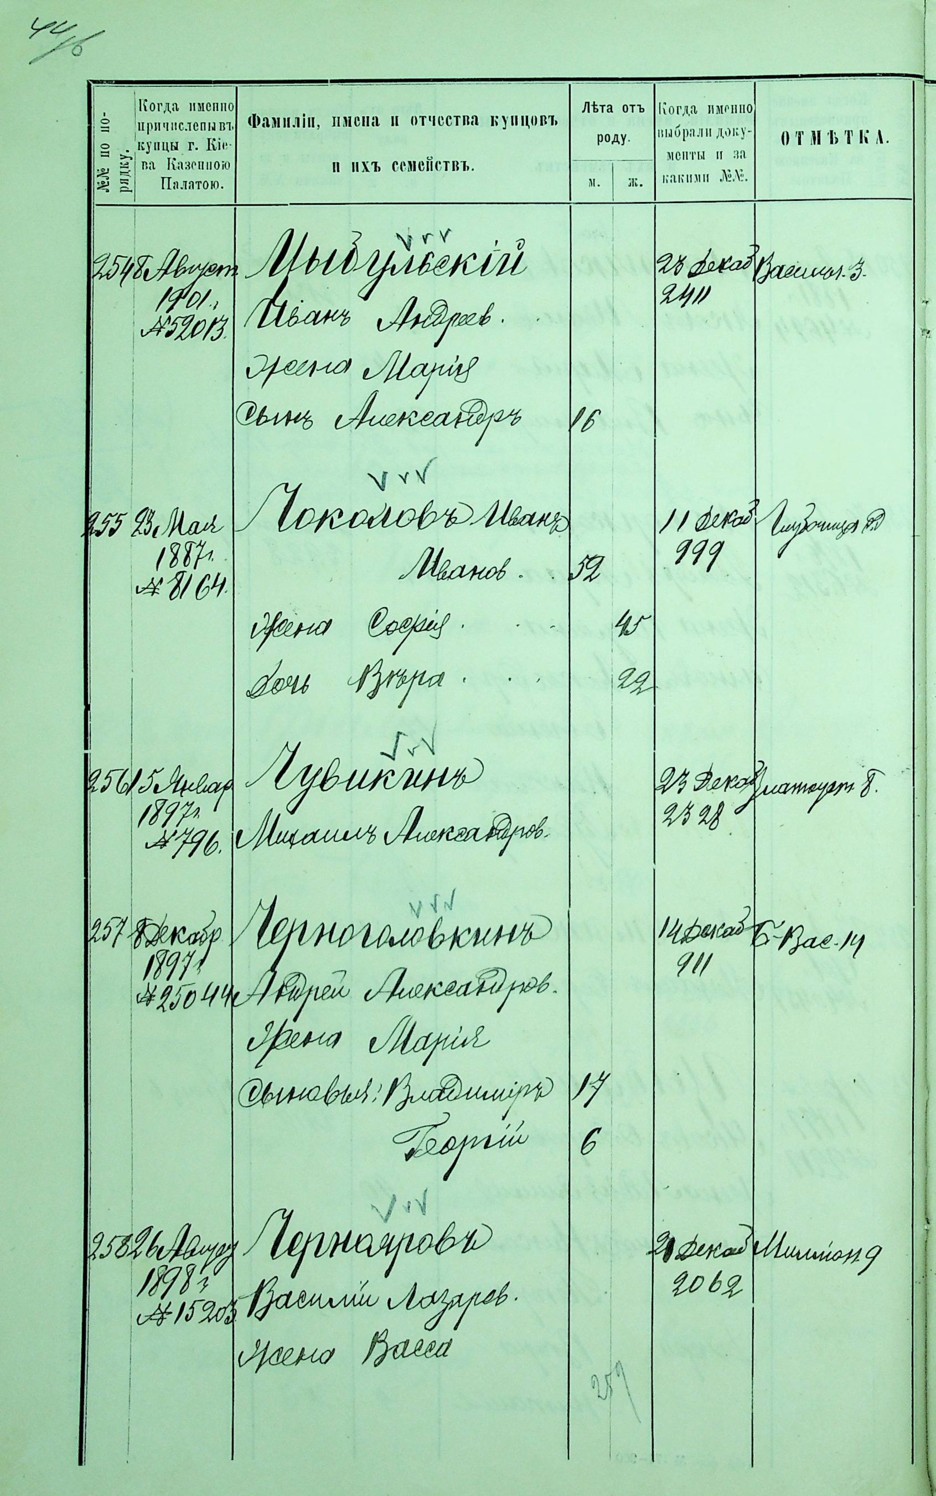 44/б
№№ по по-
рядку.
Когда именно
причислены въ
купцы г. Кіе-
ва Казенною
Палатою.
Фамиліи, имена и отчества купцовъ
и ихъ семействъ.
Лѣта отъ
роду.
м. ж.
Когда именно
выбрали доку-
менты и за
какими №№.
ОТМѢТКА.
254 8 Август 23 Декаб
1901 г. 2411
№ 52013. Иванъ Андреев.
жена Марія
сынъ Александръ 16
255 23 Мая Чоколовъ Иванъ 11 Декаб
1887 г. Иванов. 52 999
№ 8164.
Жена Софія 45
дочь Вѣра 22
256 15 Январ Чувикинъ 23 Декаб Златоуст 8.
1897 г. 2328
№ 796. Михаилъ Александров.
257 8 Декабр Черноголовкинъ 14 Декаб Б-Вас. 14
1897 г. 911
№ 25044 Андрей Александров.
Жена Марія
Сыновья: Владиміръ 17
Георгій 6
258 26 Августа Чернояровъ 21 Декаб Милліон 9
1898 г. 2062
№ 15205. Василій Лазарев.
Жена Васса
257